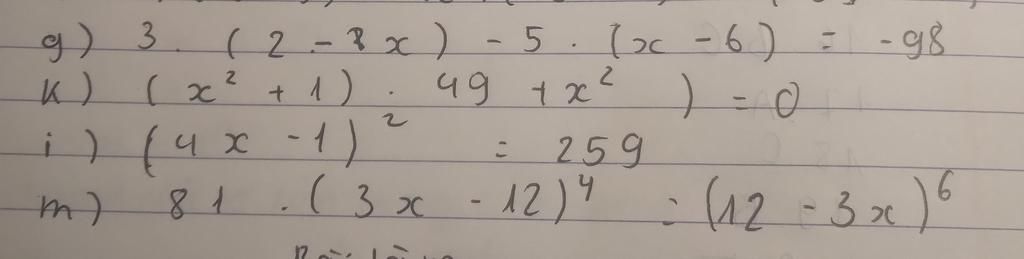 g) 3 . ( 2 - 8x ) - 5 . ( x - 6 ) = -98
k) ( x² + 1 ) . 49 + x² ) = 0
i) ( 4x - 1 )² = 259
m) 81 . ( 3x - 12 )⁴ = ( 12 - 3x )⁶